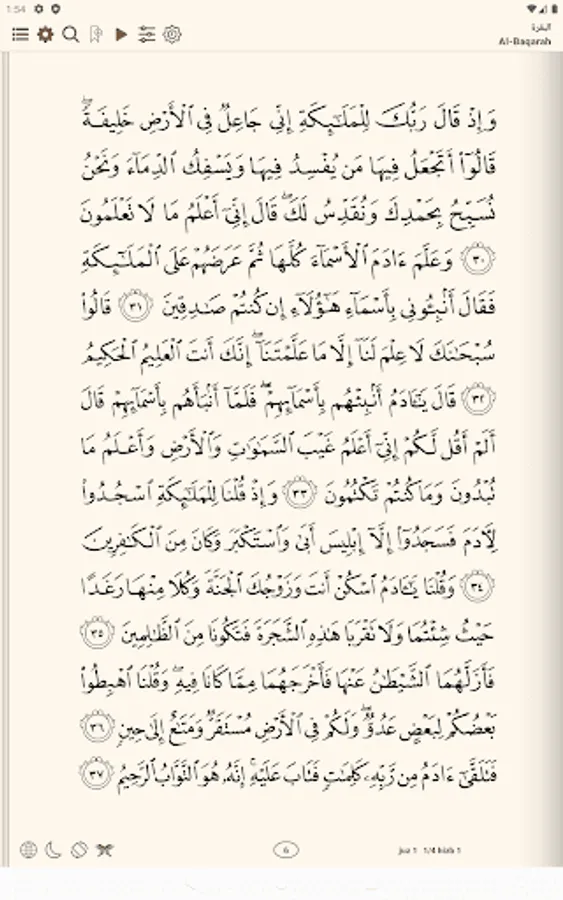 1:54
البقرة
Al-Baqarah
وَإِذْ قَالَ رَبُّكَ لِلْمَلَـٰٓئِكَةِ إِنِّى جَاعِلٌ فِى ٱلْأَرْضِ خَلِيفَةً ۖ
قَالُوٓا۟ أَتَجْعَلُ فِيهَا مَن يُفْسِدُ فِيهَا وَيَسْفِكُ ٱلدِّمَآءَ وَنَحْنُ
نُسَبِّحُ بِحَمْدِكَ وَنُقَدِّسُ لَكَ ۖ قَالَ إِنِّىٓ أَعْلَمُ مَا لَا تَعْلَمُونَ
٣٠ وَعَلَّمَ ءَادَمَ ٱلْأَسْمَآءَ كُلَّهَا ثُمَّ عَرَضَهُمْ عَلَى ٱلْمَلَـٰٓئِكَةِ
فَقَالَ أَنۢبِـُٔونِى بِأَسْمَآءِ هَـٰٓؤُلَآءِ إِن كُنتُمْ صَـٰدِقِينَ ٣١ قَالُوا۟
سُبْحَـٰنَكَ لَا عِلْمَ لَنَآ إِلَّا مَا عَلَّمْتَنَآ ۖ إِنَّكَ أَنتَ ٱلْعَلِيمُ ٱلْحَكِيمُ
٣٢ قَالَ يَـٰٓـَٔادَمُ أَنۢبِئْهُم بِأَسْمَآئِهِمْ ۖ فَلَمَّآ أَنۢبَأَهُم بِأَسْمَآئِهِمْ قَالَ
أَلَمْ أَقُل لَّكُمْ إِنِّىٓ أَعْلَمُ غَيْبَ ٱلسَّمَـٰوَٰتِ وَٱلْأَرْضِ وَأَعْلَمُ مَا
تُبْدُونَ وَمَا كُنتُمْ تَكْتُمُونَ ٣٣ وَإِذْ قُلْنَا لِلْمَلَـٰٓئِكَةِ ٱسْجُدُوا۟
لِـَٔادَمَ فَسَجَدُوٓا۟ إِلَّآ إِبْلِيسَ أَبَىٰ وَٱسْتَكْبَرَ وَكَانَ مِنَ ٱلْكَـٰفِرِينَ
٣٤ وَقُلْنَا يَـٰٓـَٔادَمُ ٱسْكُنْ أَنتَ وَزَوْجُكَ ٱلْجَنَّةَ وَكُلَا مِنْهَا رَغَدًا
حَيْثُ شِئْتُمَا وَلَا تَقْرَبَا هَـٰذِهِ ٱلشَّجَرَةَ فَتَكُونَا مِنَ ٱلظَّـٰلِمِينَ ٣٥
فَأَزَلَّهُمَا ٱلشَّيْطَـٰنُ عَنْهَا فَأَخْرَجَهُمَا مِمَّا كَانَا فِيهِ ۖ وَقُلْنَا ٱهْبِطُوا۟
بَعْضُكُمْ لِبَعْضٍ عَدُوٌّ ۖ وَلَكُمْ فِى ٱلْأَرْضِ مُسْتَقَرٌّ وَمَتَـٰعٌ إِلَىٰ حِينٍ ٣٦
فَتَلَقَّىٰٓ ءَادَمُ مِن رَّبِّهِۦ كَلِمَـٰتٍ فَتَابَ عَلَيْهِ ۚ إِنَّهُۥ هُوَ ٱلتَّوَّابُ ٱلرَّحِيمُ ٣٧
6
juz 1 1/4 hizb 1